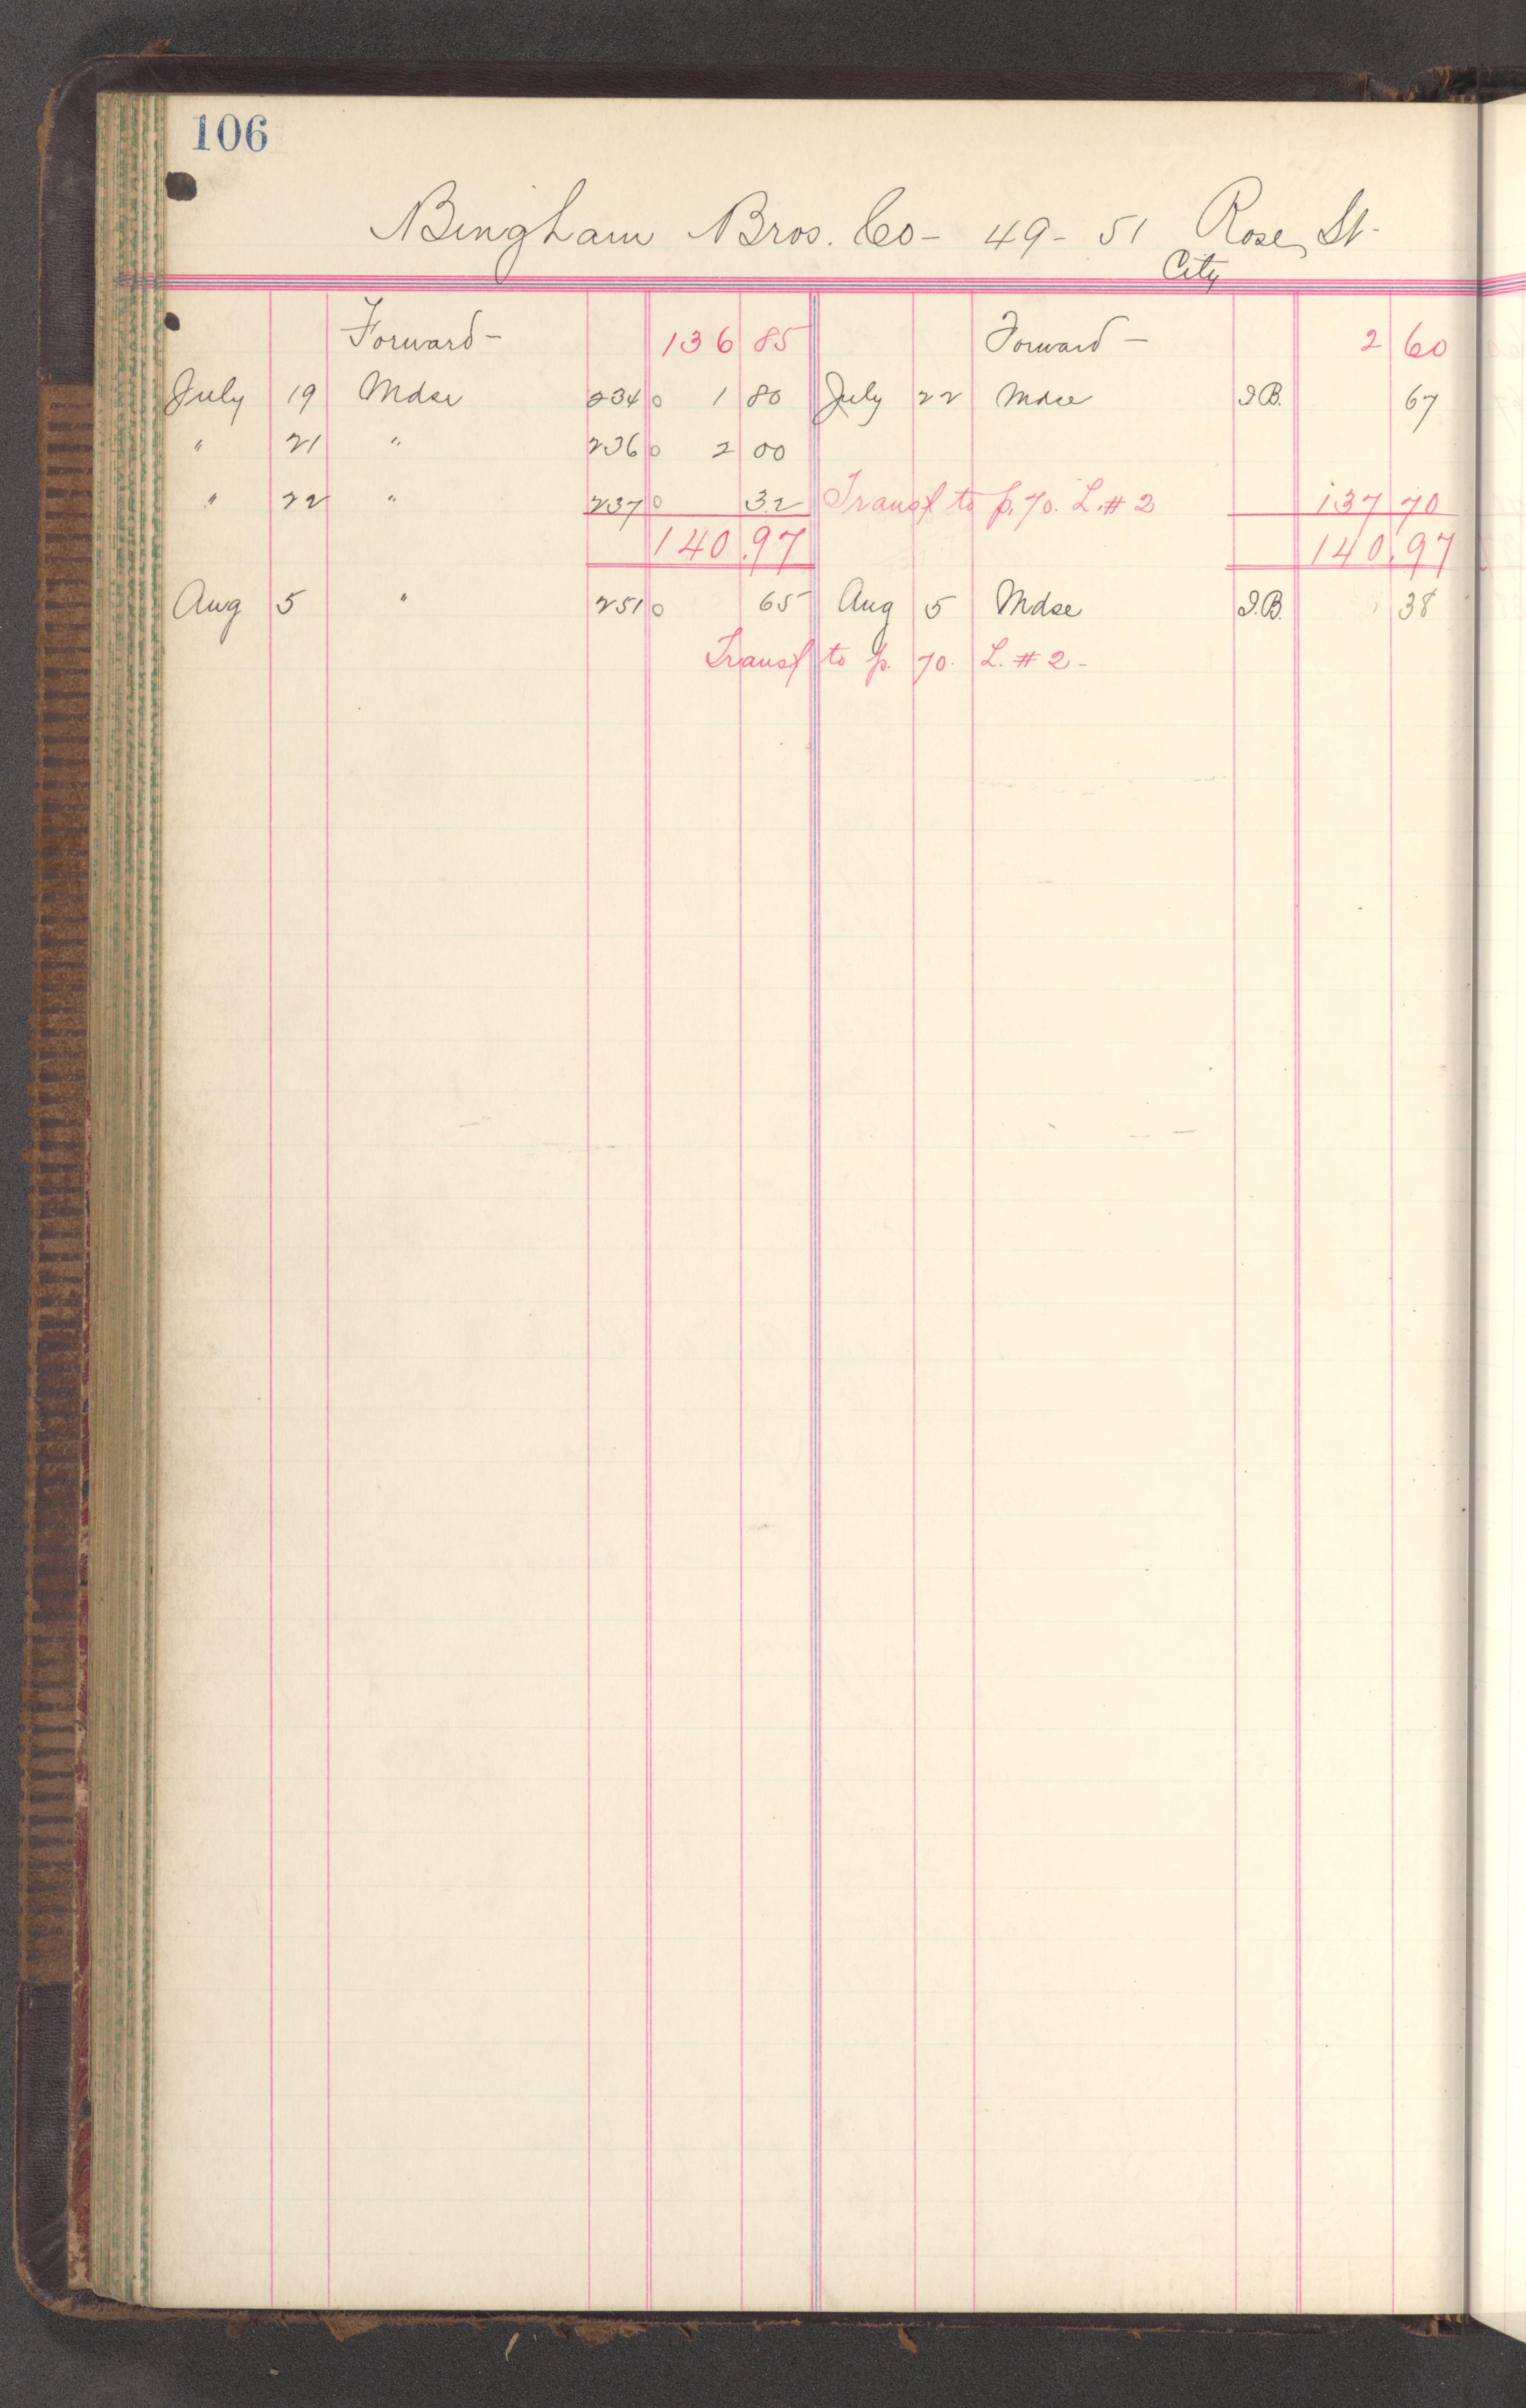 106
Bingham Bros. Co - 49 - 51 Rose, St -
City
Forward - 136 85 Forward - 2 60
July 19 Mdse 234 0 1 80 July 22 Mdse I.B. 67
" 21 " 236 0 2 00
" 22 " 237 0 32 Transf to p. 70. L. # 2 137 70
140.97 140.97
Aug 5 " 251 0 65 Aug 5 Mdse I.B. 38
Transf to p. 70. L. # 2 -